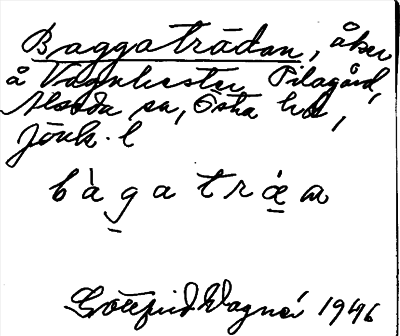 Baggaträdan, åker
å Vagnhester Pilagård,
Alseda sn, Östra hd,
Jönk. l
bàgatræ̀n
Gottfrid Wagnér 1946